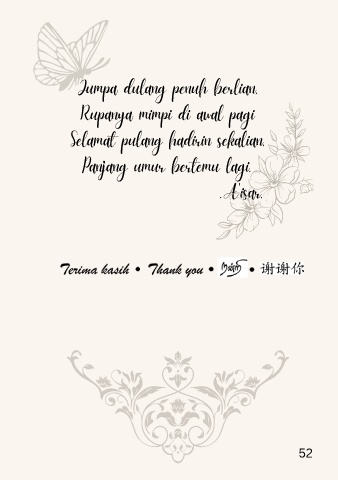 Jumpa dulang penuh berlian.
Rupanya mimpi di awal pagi
Selamat pulang hadirin sekalian.
Panjang umur bertemu lagi.
. A'isar.
Terima kasih • Thank you • நன்றி • 谢谢你
52